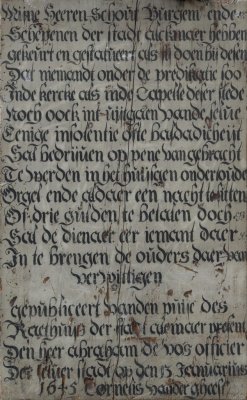 Mijne Heeren Schout Burgem ende
Schepenen der stadt alckmaer hebben
gekeurt en gestatueert als sij doen bij desen
Dat niemandt onder de predicatie soo
inde kercke als inde Capelle deser stede
noch oock int uijtgaen vande selve
Eenige insolentie ofte baldadicheijt
Sal bedrijven op pene van gebracht
Te werden in het huijsgen onder oude
Orgel ende aldaer een nacht te sitten
Of drie gulden te betalen doch
Sal de dienaer eer iemant daer
In te brengen de ouders daer van
verwittigen
Gepubliceert vanden puije des
Raethuijs der stadt alcmaer present
Den heer abraham de vos officier
Der selver stadt op den 13 Januarius
1645 Cornelis vander gheest